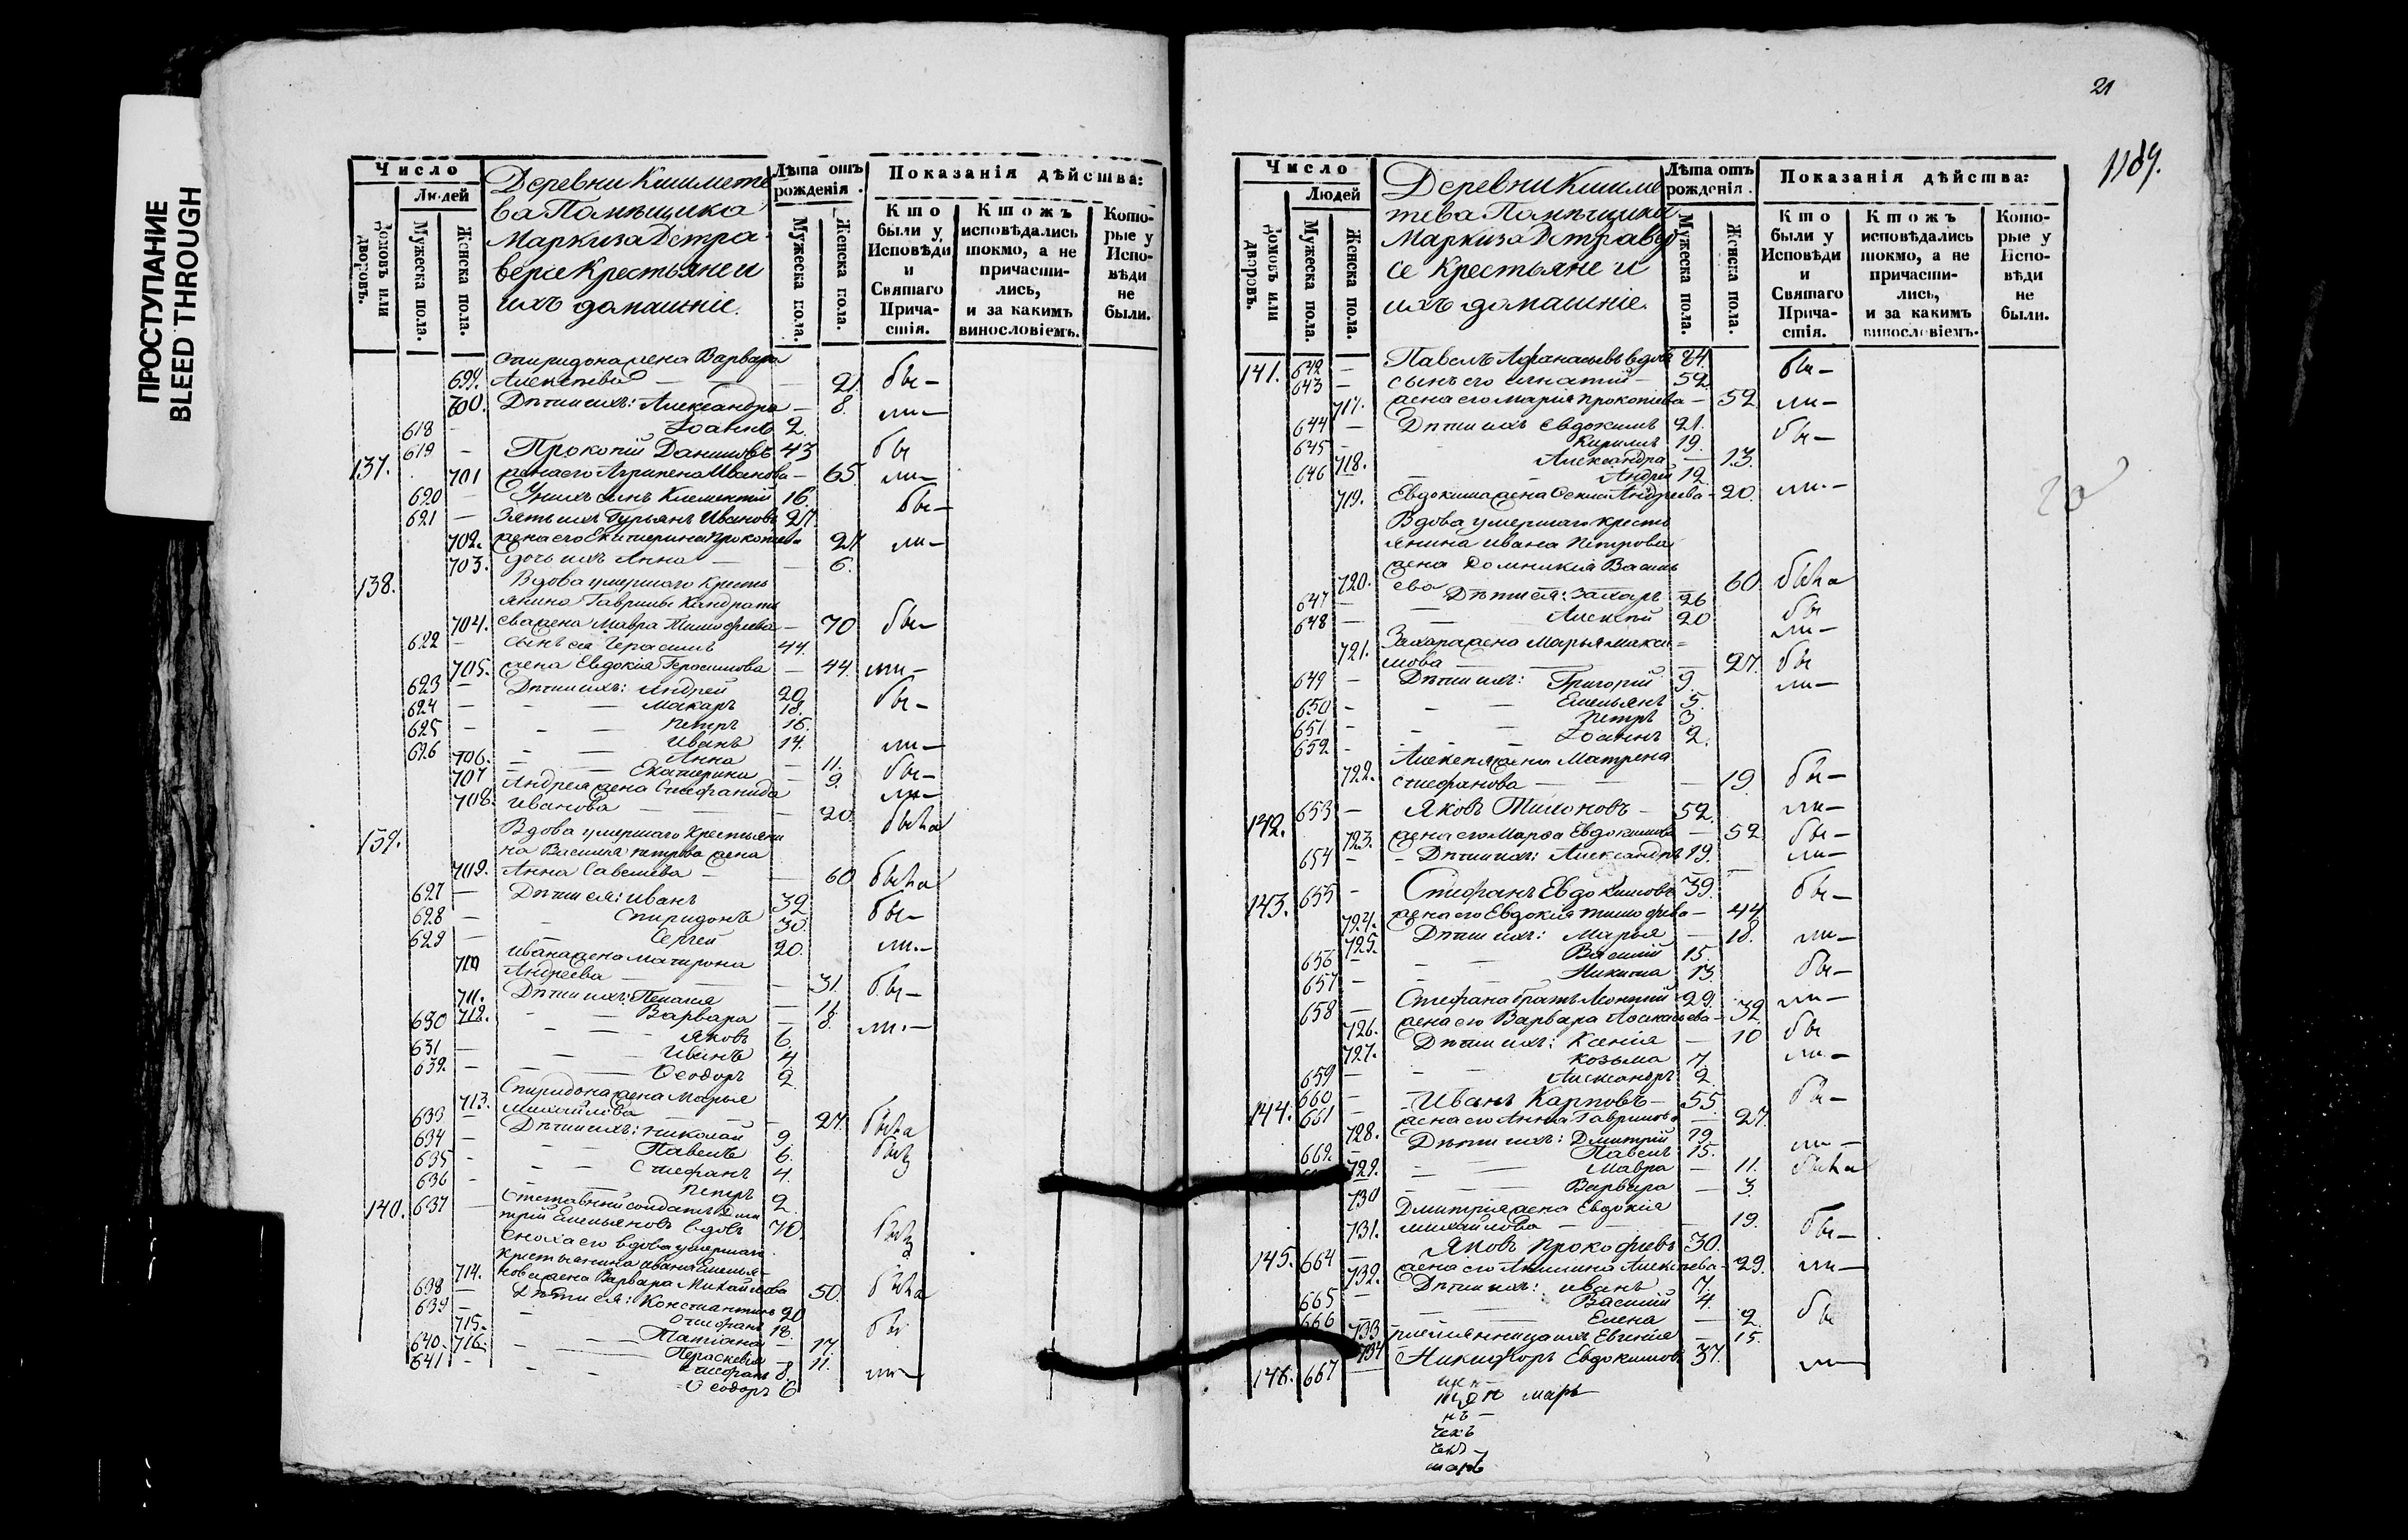 ПРОСТУПАНИЕ
BLEED THROUGH
Число
Людей
Домовъ или дворовъ.
Мужеска пола.
Женска пола.
Деревни Кишмете
ва Помѣщика
Маркиза Детра-
версе Крестьяне и
ихъ домашніе.
Лѣта отъ рожденія.
Мужеска пола.
Женска пола.
Показанія дѣйства:
Кто были у Исповѣди и Святаго Прича-стія.
Ктожъ исповѣдались токмо, а не причасти-лись, и за какимъ винословіемъ.
Кото-рые у Испо-вѣди не были.
Спиридона жена Варвара
699. Алексѣева — — 21. бы-
700. Дѣти ихъ: Александра — 8. ли-
618 — Іоаннъ 2.
137. 619 — Прокопій Даниловъ 43 бы
701 жена его Агрипена Иванова — 65. ли-
620 — У нихъ сынъ Климентій 16. бы-
621 — Зять ихъ Гурьянъ Ивановъ 27.
702. жена его Екатерина Прокопьева 27 ли-
703. дочь ихъ Анна — 6.
138. Вдова умершаго Кресть
янина Гаврилы Кондрать
704. ева жена Мавра Тимофеева — 70 бы-
622 — Сынъ ея Герасимъ 44.
705. жена Евдокія Герасимова — 44. ли-
623 — Дѣти ихъ: Андрей 20. бы-
624 — — Макаръ 18.
625 — — Петръ 16.
626 — Иванъ 14. ли-
706. — Анна — 11.
707 — Екатерина — 9. бы-
Андрея жена Стефанида ли-
708. Иванова — — 20. была
139. Вдова умершаго Крестьяни
на Василья Петрова жена
709. Анна Савельева — 60 была
627 — Дѣти ея: Иванъ 32
628 — Спиридонъ 30. бы-
629 — Сергей 20. ли-
Ивана жена Матрона
710 Андреева — — 31. бы-
711. Дѣти ихъ: Пелагея — 11.
712. — Варвара — 8. ли-
630 — Яковъ 6.
631 — — Иванъ 4
632. — — Ѳеодоръ 2
Спиридона жена Марья
713. Михайлова — — 27. была
633 — Дѣти ихъ: Николай 9.
634 — Павелъ 6. былъ
635 — — Стефанъ 4.
636 — Петръ 2.
140. 637 — Отставный солдатъ Дми
трій Емельяновъ вдовъ 70. былъ
Сноха его вдова умершаго
крестьянина Ивана Емелья-
714. нова жена Варвара Михайлова 50. была
638 — Дѣти ея: Константинъ 20
639 — Стефанъ 18. бы
715. — Татіана — 17.
716. — Параскевія — 11.
640. — Стефанъ 8. ли-
641 — Ѳеодоръ 6
21
1189.
Число
Людей
Домовъ или дворовъ.
Мужеска пола.
Женска пола.
Деревни Кишме
тева Помѣщика
Маркиза Детравер
се Крестьяне и
ихъ домашніе.
Лѣта отъ рожденія.
Мужеска пола.
Женска пола.
Показанія дѣйства:
Кто были у Исповѣди и Святаго Прича-стія.
Ктожъ исповѣдались токмо, а не причасти-лись, и за какимъ винословіемъ.
Кото-рые у Испо-вѣди не были.
141. 642 — Павелъ Афанасьевъ вдовъ 84. бы-
643 — сынъ его Игнатій — 52.
717. жена его Марія Прокопьева — 52 ли-
644 — Дѣти ихъ Евдокимъ 21. бы-
645 — Кирилъ 19.
718. Александра — 13.
646 — — Андрей 12
719. Евдокима жена Ѳекла Андреева — 20. ли-
Вдова умершаго кресть
янина Ивана Петрова
жена Домникія Василь
720. ева — 60 была
647 — Дѣти ея: Захаръ 26
648 — — Алексѣй 20 бы
Захара жена Марья Макси= ли-
721. мова — — 27. бы
649 — Дѣти ихъ: Григорій 9. ли-
650 — — Емельянъ 5.
651 — — Петръ 3
652 — — Іоаннъ 2.
Алексѣя жена Матрена
722. Стефанова — — 19. бы-
142. 653 — Яковъ Тихоновъ — 52. ли-
723. жена его Марѳа Евдокимова — 52 бы-
654 — Дѣти ихъ: Александръ 19. ли-
143. 655 — Стефанъ Евдокимовъ 39. бы-
724. жена его Евдокія Тимофеева — 44
725. Дѣти ихъ: Марья — 18. ли-
656 — Василій 15.
657 — — Никита 13. бы-
658 — Стефана братъ Леонтій 29. ли-
726. жена его Варвара — 32.
727. Дѣти ихъ: Ксенія — 10 бы
659 — Козьма 7 ли-
660 — Александръ 2.
144. 661 — Иванъ Карповъ — 55. бы-
728. жена его Анна Гаврилова — 27.
662. — Дѣти ихъ: Дмитрій 19. ли-
Павелъ 15.
729. — Мавра — 11. была
730 — Варвара — 3.
Дмитрія жена Евдокія
731. Михайлова — — 19. бы-
145. 664 — Яковъ Прокофьевъ 30.
732. жена его Акилина Алексѣева — 29. ли-
665 — Дѣти ихъ: Иванъ 7.
666 — Василій 4. бы
733 — Елена — 2.
734 племянница ихъ Евгенія — 15.
146. 667 — Никифоръ Евдокимовъ 37. ли-
марь